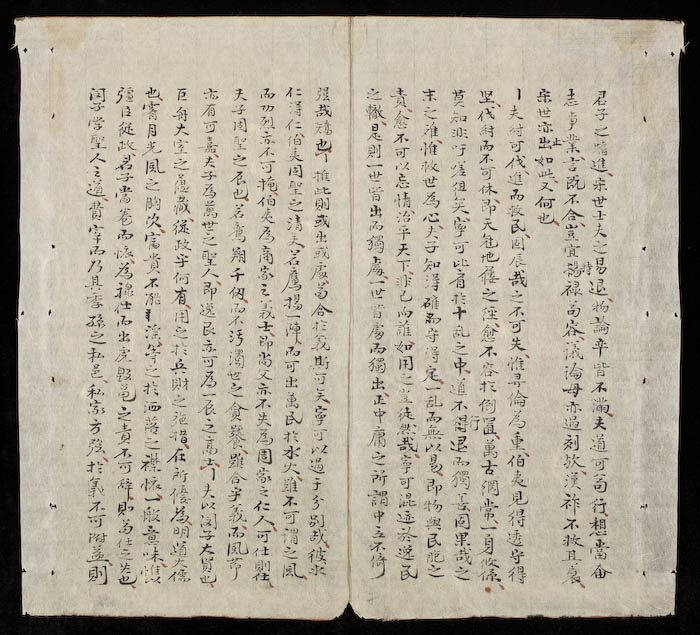 君子之難進宋世士夫之易退物論卒皆不滿夫道可苟行想當
志業言既不合豈宜時祿而容議論毋亦過刻於漢祚不救且衰
宋世亦止出如此又何也
夫紂可伐進而救民固辰哉之不可失惟倫為重伯夷見得透守得
堅伐紂而不可休即天地之經愈不容於倒置萬古綱常一身攸係
莫知非吁嗟徂矣寧可比肩於十亂之中道不行退而獨善固果哉之
末之難惟救世為心夫子知得確而守得定一亂而無以易即物與民胞之
責愈不可以忘情治平天下非己而誰如用之豈徒然哉寧可混迹於逸民
之轍是則一世皆出而獨處一世皆處而獨出正中庸之所謂中立不倚
强哉矯也推此則或出或處苟合於義斯可矣寧可以過于分別哉彼求
仁得仁伯夷固聖之清夫若鷹揚一陣而可出萬民於水火雖不可謂之風
而功烈亦不可掩伯夷為商家之義士即尚父亦不失為周家之仁人可仕則仕
夫子固聖之辰也若翔千仞而不污濁世之貪饕雖合乎義而風節
亦有可嘉夫子為萬世之聖人即逸民亦可為一辰之高士夫以閔子大賢也
巨舟大室之蘊藏從政乎何有用之於兵財之施措在所優為明道大儒
也霽月光風之胸次富貴不能淫等之於洒落之襟懷一般意味惟以
彊臣從政君子當卷而懷為祿仕而出虎龜之責不可辭則苟仕之失也
閔子學聖人之道費宰而乃其季孫之私邑私家方强於義不可附益則